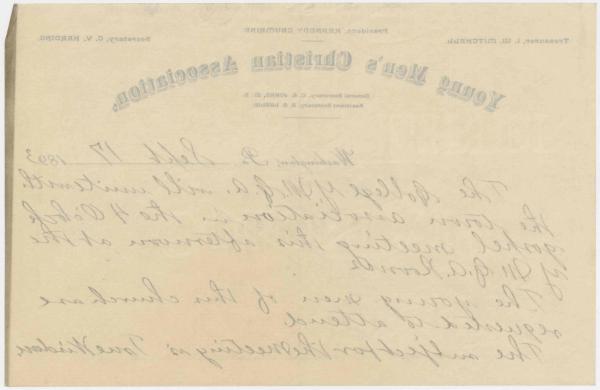 Treasurer, I. W. MITCHELL.
President, KENNEDY CRUMRINE.
Secretary, C. V. HARDING.
Young Men's Christian Association,
General Secretary, C. A. JONES, M. D.
Assistant Secretary,
Washington, Pa. Sept 17 1893
The College Y.M.C.A. will unite with
the town association in the 4 O'clock
gospel meeting this afternoon at the
Y.M.C.A. Rooms
The young men of this church are
requested to attend
The subject for the meeting is True Wisdom